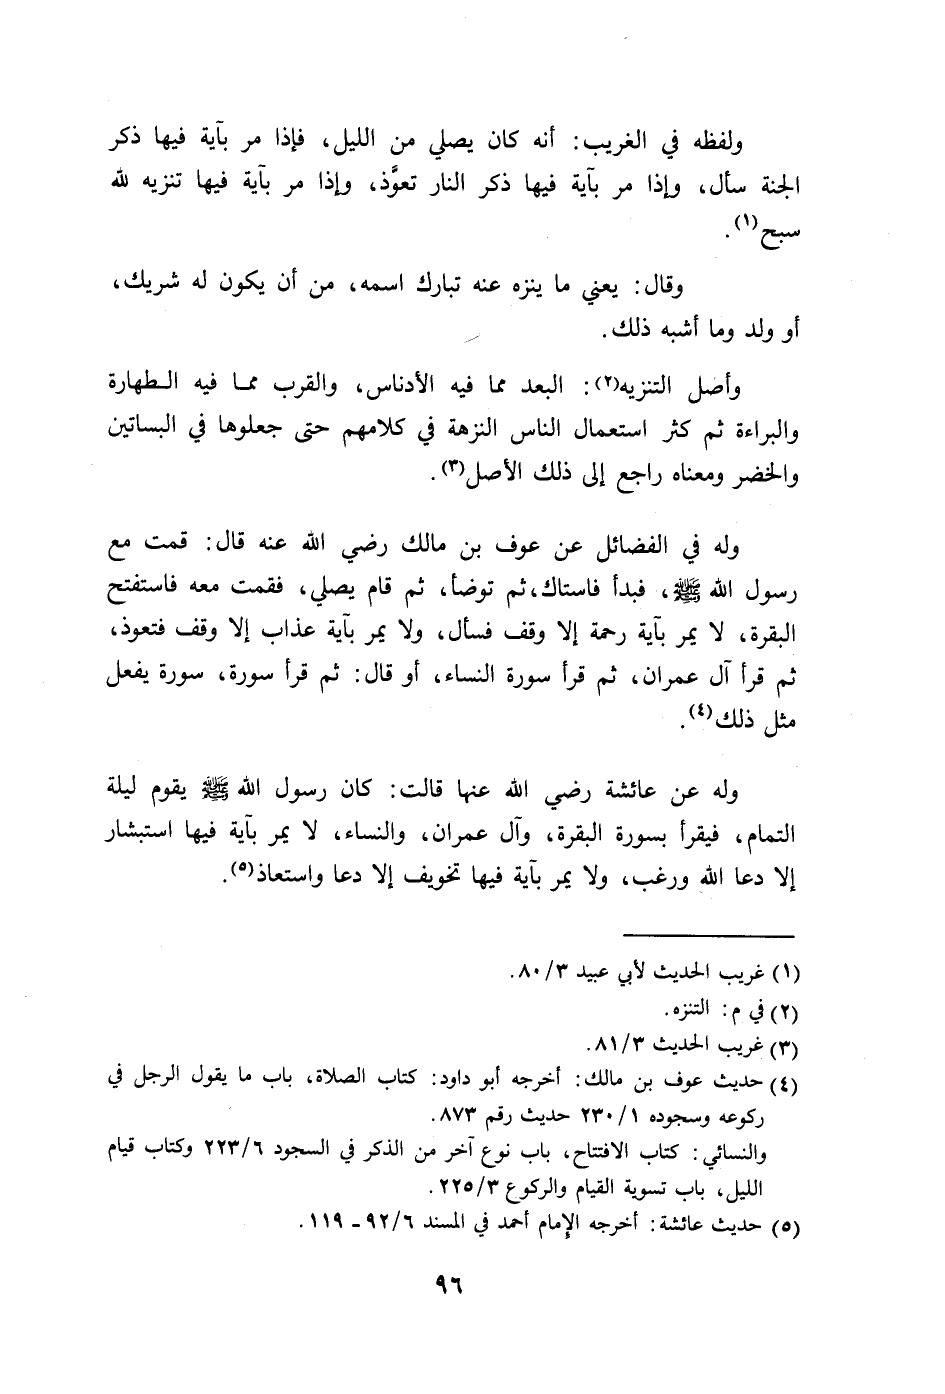 ولفظه في الغريب: أنه كان يصلي من الليل، فإذا مر بآية فيها ذكر
الجنة سأل، وإذا مر بآية فيها ذكر النار تعوَّذ، وإذا مر بآية فيها تنزيه لله
سبح(١).
وقال: يعني ما ينزه عنه تبارك اسمه، من أن يكون له شريك،
أو ولد وما أشبه ذلك.
وأصل التنزيه(٢): البعد مما فيه الأدناس، والقرب مما فيه الطهارة
والبراءة ثم كثر استعمال الناس النزهة في كلامهم حتى جعلوها في البساتين
والخضر ومعناه راجع إلى ذلك الأصل(٣).
وله في الفضائل عن عوف بن مالك رضي الله عنه قال: قمت مع
رسول الله ﷺ، فبدأ فاستاك، ثم توضأ، ثم قام يصلي، فقمت معه فاستفتح
البقرة، لا يمر بآية رحمة إلا وقف فسأل، ولا يمر بآية عذاب إلا وقف فتعوذ،
ثم قرأ آل عمران، ثم قرأ سورة النساء، أو قال: ثم قرأ سورة، سورة يفعل
مثل ذلك(٤).
وله عن عائشة رضي الله عنها قالت: كان رسول الله ﷺ يقوم ليلة
التمام، فيقرأ بسورة البقرة، وآل عمران، والنساء، لا يمر بآية فيها استبشار
إلا دعا الله ورغب، ولا يمر بآية فيها تخويف إلا دعا واستعاذ(٥).
(١) غريب الحديث لأبي عبيد ٨٠/٣.
(٢) في م: التنزه.
(٣) غريب الحديث ٨١/٣.
(٤) حديث عوف بن مالك: أخرجه أبو داود: كتاب الصلاة، باب ما يقول الرجل في
ركوعه وسجوده ٢٣٠/١ حديث رقم ٨٧٣.
والنسائي: كتاب الافتتاح، باب نوع آخر من الذكر في السجود ٢٢٣/٦ وكتاب قيام
الليل، باب تسوية القيام والركوع ٢٢٥/٣.
(٥) حديث عائشة: أخرجه الإمام أحمد في المسند ٩٢/٦ - ١١٩.
٩٦